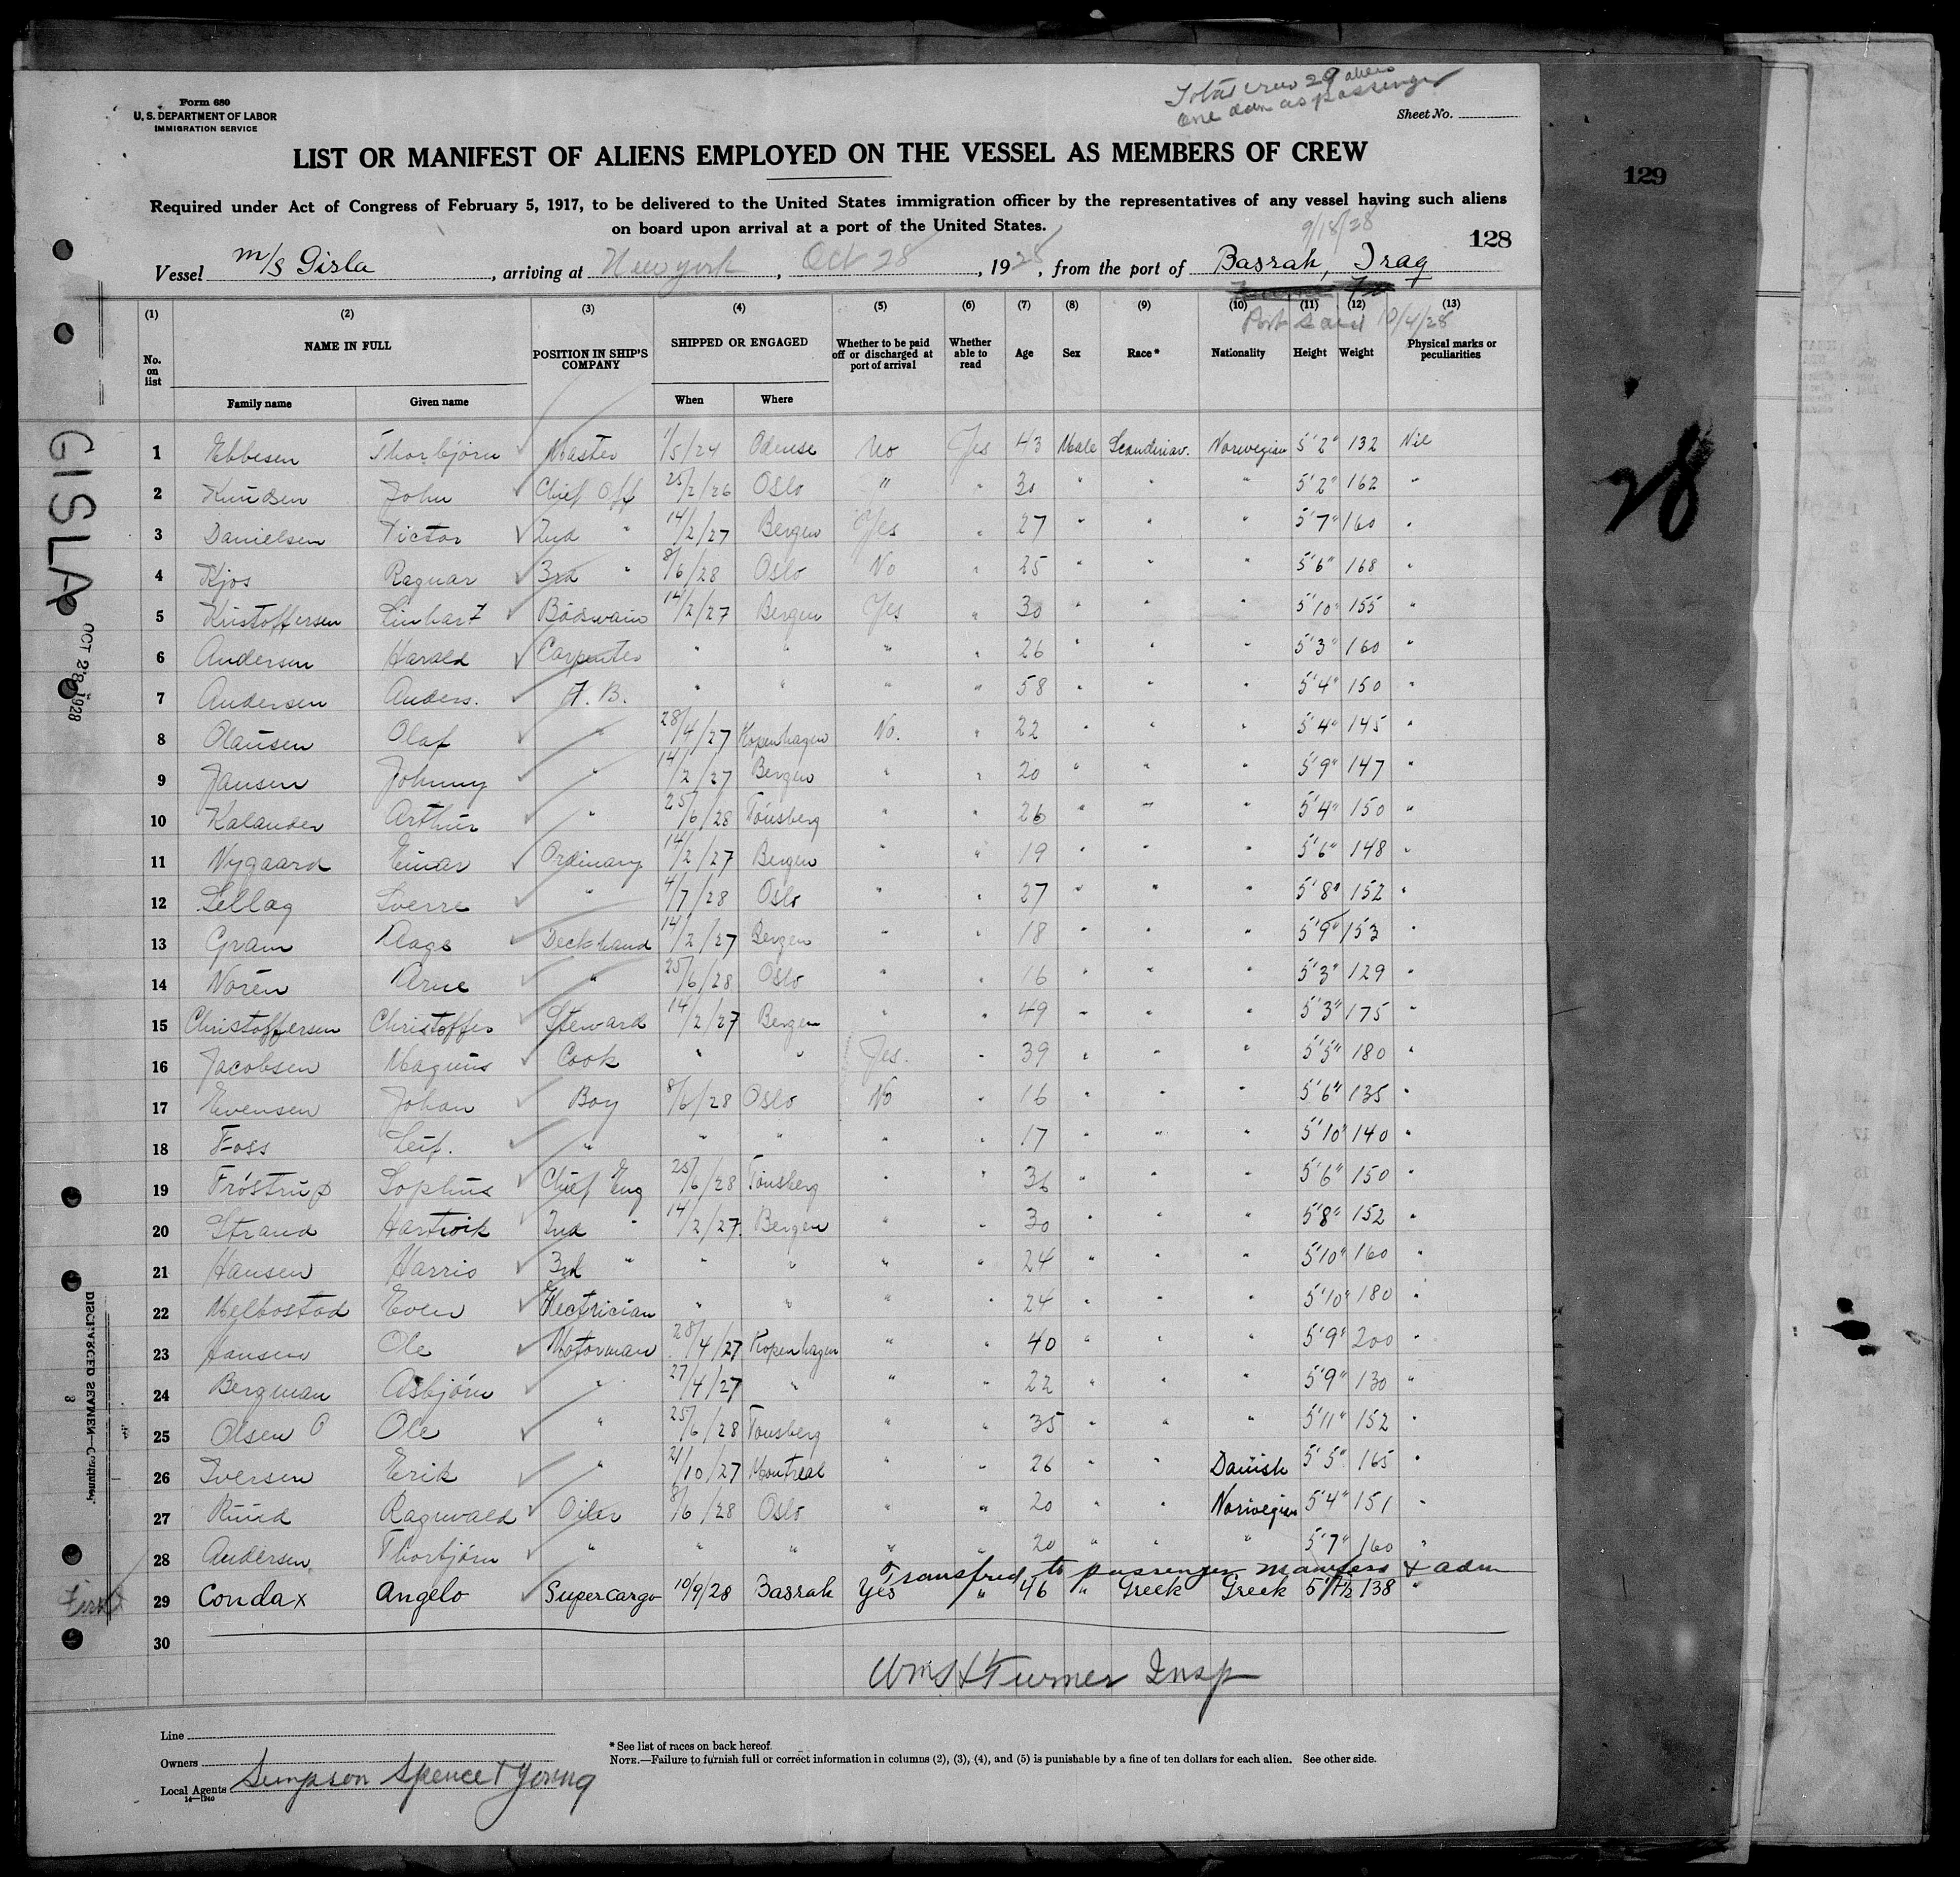 Form 680
U. S. DEPARTMENT OF LABOR
IMMIGRATION SERVICE
Total crew 29 aliens
one adm as passenger
Sheet No.
LIST OR MANIFEST OF ALIENS EMPLOYED ON THE VESSEL AS MEMBERS OF CREW
129
Required under Act of Congress of February 5, 1917, to be delivered to the United States immigration officer by the representatives of any vessel having such aliens
on board upon arrival at a port of the United States.
9/18/28
128
Vessel M/S Gisla, arriving at New york, Oct 28, 1928, from the port of Basrah, Iraq
Port Said 10/4/28
(1) (2) (3) (4) (5) (6) (7) (8) (9) (10) (11) (12) (13)
No. on list NAME IN FULL POSITION IN SHIP'S COMPANY SHIPPED OR ENGAGED Whether to be paid off or discharged at port of arrival Whether able to read Age Sex Race* Nationality Height Weight Physical marks or peculiarities
Family name Given name When Where
1 Ebbesen Thorbjörn Master 1/5/24 Odense No Yes 43 Male Scandinav. Norwegian 5'2" 132 Nil
2 Knudsen John Chief Off 25/2/26 Oslo " " 30 " " " 5'2" 162 "
3 Danielsen Victor 2nd " 14/2/27 Bergen Yes " 27 " " " 5'7" 160 "
4 Kjos Ragnar 3rd " 8/6/28 Oslo No " 25 " " " 5'6" 168 "
5 Kristoffersen Linhart Boōswain 14/2/27 Bergen Yes " 30 " " " 5'10" 155 "
6 Andersen Harald Carpenter " " " " 26 " " " 5'3" 160 "
7 Andersen Anders. A. B. " " " " 58 " " " 5'4" 150 "
8 Olaüsen Olaf " 28/4/27 Kopenhagen No. " 22 " " " 5'4" 145 "
9 Jansen Johnny " 14/2/27 Bergen " " 20 " " " 5'9" 147 "
10 Kalander Arthür " 25/6/28 Tönsberg " " 26 " " " 5'4" 150 "
11 Nygaard Einar Ordinary 14/2/27 Bergen " " 19 " " " 5'6" 148 "
12 Sellag Sverre " 4/7/28 Oslo " " 27 " " " 5'8" 152 "
13 Gram Aage Deckhand 14/2/27 Bergen " " 18 " " " 5'9" 153 "
14 Norén Arne " 25/6/28 Oslo " " 16 " " " 5'3" 129 "
15 Christoffersen Christoffer Steward 14/2/27 Bergen " " 49 " " " 5'3" 175 "
16 Jacobsen Magnüs Cook " " Yes. " 39 " " " 5'5" 180 "
17 Evensen Johan Boy 8/6/28 Oslo No " 16 " " " 5'6" 135 "
18 Foss Leif. " " " " " 17 " " " 5'10" 140 "
19 Fröstrup Sophus Chief Eng 25/6/28 Tönsberg " " 36 " " " 5'6" 150 "
20 Strand Hartvik 2nd " 14/2/27 Bergen " " 30 " " " 5'8" 152 "
21 Hansen Harris 3rd " " " " " 24 " " " 5'10" 160 "
22 Melbostad Even Electrician " " " " 24 " " " 5'10" 180 "
23 Hansen Ole Motorman 28/4/27 Kopenhagen " " 40 " " " 5'9" 200 "
24 Bergman Asbjörn " 27/4/27 " " " 22 " " " 5'9" 130 "
25 Olsen O Ole " 25/6/28 Tönsberg " " 35 " " " 5'11" 152 "
26 Iversen Erik " 21/10/27 Montreal " " 26 " " Danish 5'5" 165 "
27 Rüüd Ragnvald Oiler 8/6/28 Oslo " " 20 " " Norwegian 5'4" 151 "
28 Andersen Thorbjörn " " " " " 20 " " " 5'7" 160 "
Transfred to passenger manifest & adm
29 Condax Angelo Supercargo 10/9/28 Basrah Yes " 46 " Greek Greek 5'7½ 138 "
30
Wm H Turner Insp
Line
Owners
Local Agents Simpson Spence & Young
14—1940
* See list of races on back hereof.
NOTE.—Failure to furnish full or correct information in columns (2), (3), (4), and (5) is punishable by a fine of ten dollars for each alien. See other side.
GISLA
OCT 28 1928
DISCHARGED SEAMEN
28